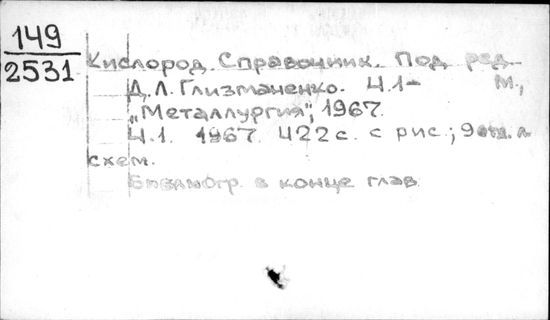 149
2531
Кислород. Справочник. Под ред.
Д. Л. Глизманенко. Ч.1- М.,
„Металлургия", 1967.
Ч.1. 1967. 422 с. с рис.; 9 отд. л.
схем.
Библиогр. в конце глав.